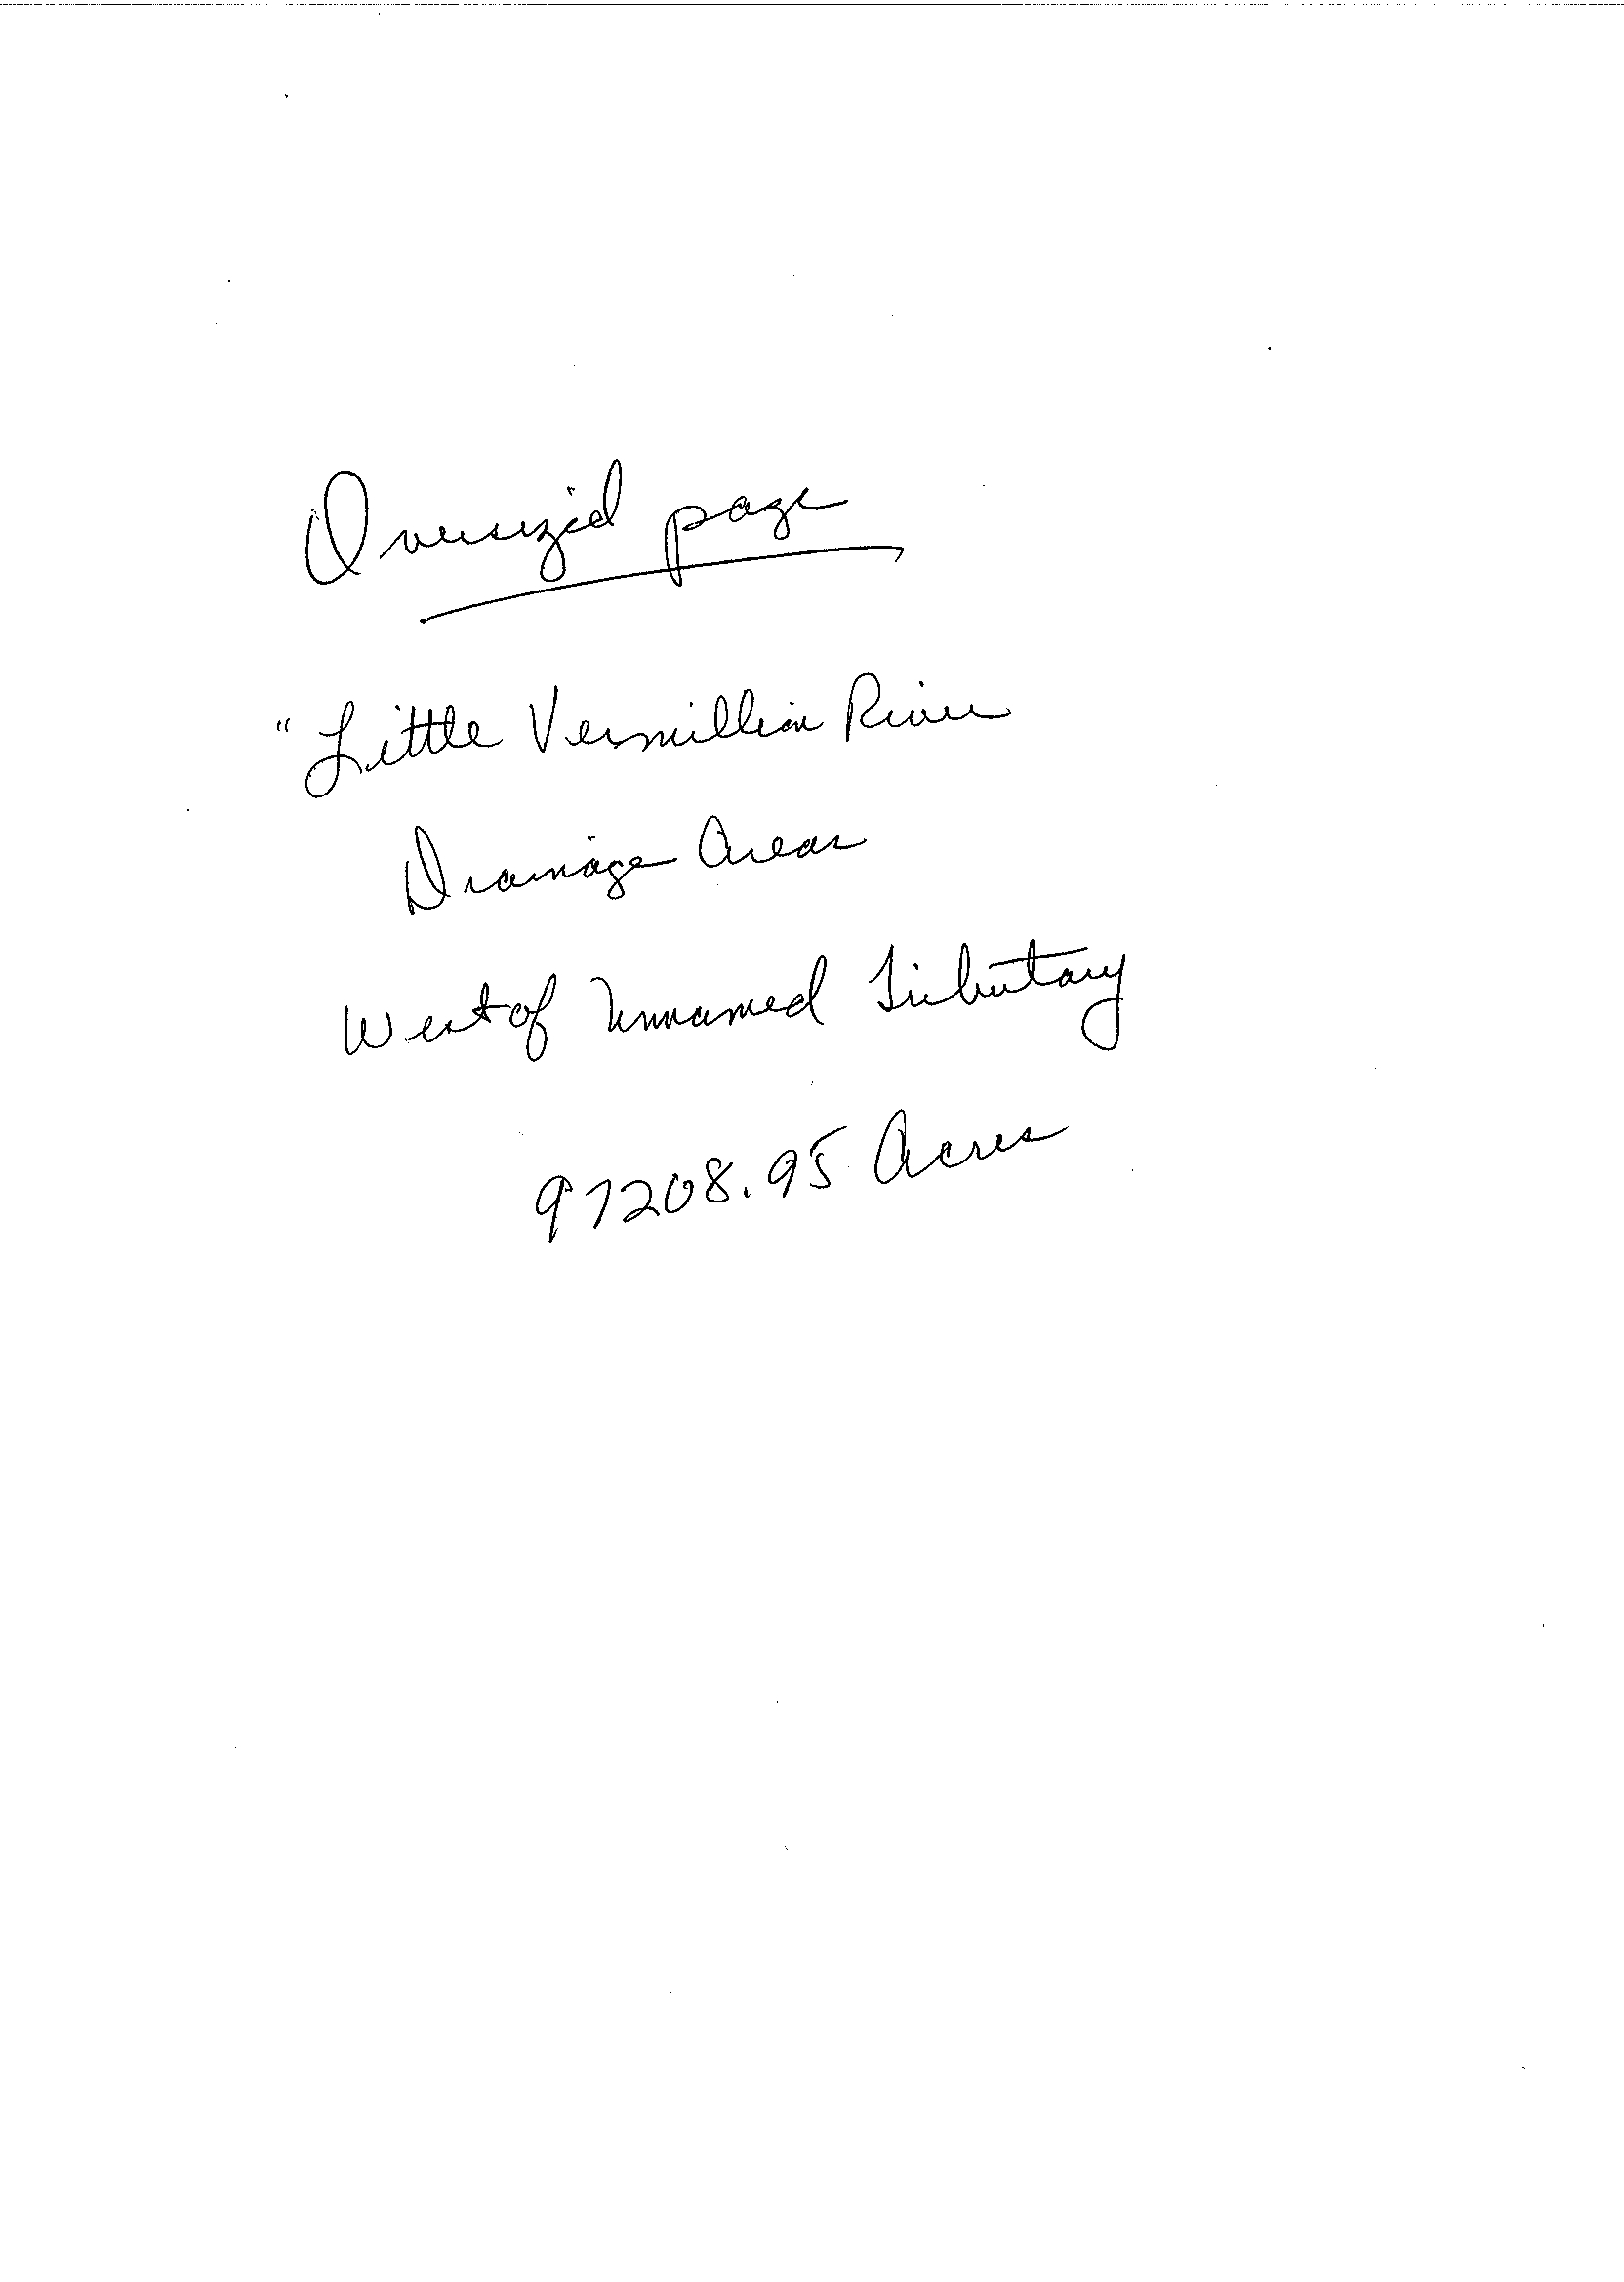 Oversized page
"Little Vermillion River
Drainage Areas
West of Unnamed Tributary
97208.95 Acres